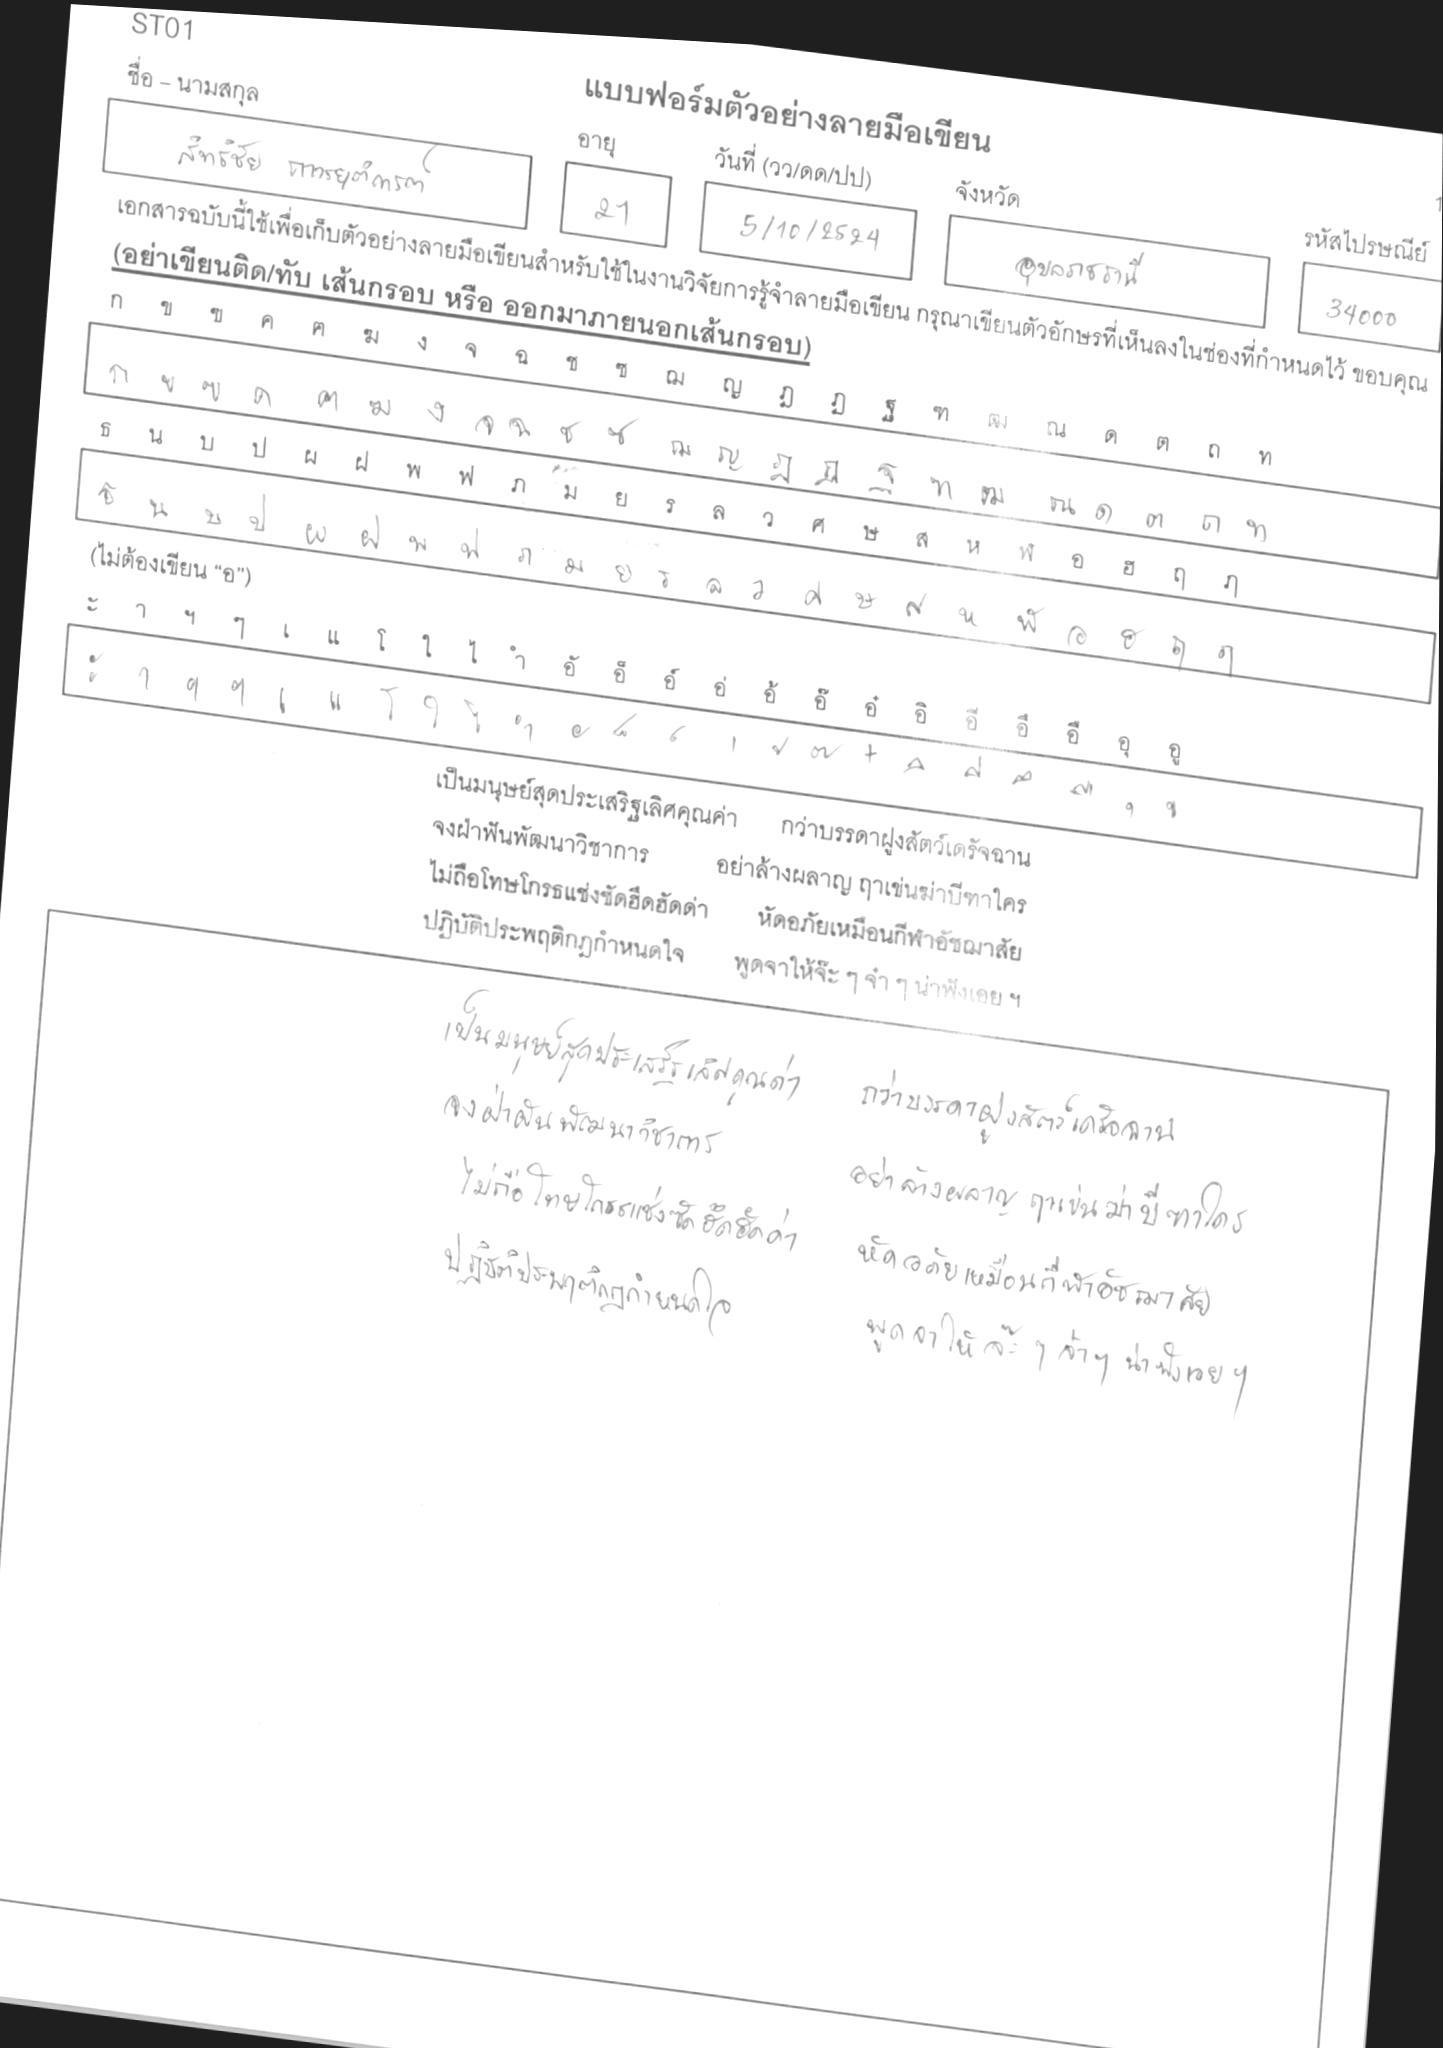 ST01
แบบฟอร์มตัวอย่างลายมือเขียน
ชื่อ – นามสกุล อายุ วันที่ (วว/ดด/ปป) จังหวัด รหัสไปรษณีย์
สิทธิชัย 21 5/10/2524 อุบลราชธานี 34000
เอกสารฉบับนี้ใช้เพื่อเก็บตัวอย่างลายมือเขียนสำหรับใช้ในงานวิจัยการรู้จำลายมือเขียน กรุณาเขียนตัวอักษรที่เห็นลงในช่องที่กำหนดไว้ ขอบคุณ
(อย่าเขียนติด/ทับ เส้นกรอบ หรือ ออกมาภายนอกเส้นกรอบ)
ก ข ฃ ค ฅ ฆ ง จ ฉ ช ซ ฌ ญ ฎ ฏ ฐ ฑ ฒ ณ ด ต ถ ท
ก ข ฃ ค ฅ ฆ ง จ ฉ ช ซ ฌ ญ ฎ ฏ ฐ ฑ ฒ ณ ด ต ถ ท
ธ น บ ป ผ ฝ พ ฟ ภ ม ย ร ล ว ศ ษ ส ห ฬ อ ฮ ฤ ฦ
ธ น บ ป ผ ฝ พ ฟ ภ ม ย ร ล ว ศ ษ ส ห ฬ อ ฮ ฤ ฦ
(ไม่ต้องเขียน “อ”)
ะ า ฯ ๆ เ แ โ ใ ไ ำ อั อ็ อ์ อ่ อ้ อ๊ อ๋ อิ อี อึ อื อุ อู
ะ า ฯ ๆ เ แ โ ใ ไ ำ ั ็ ์ ่ ้ ๊ ๋ ิ ี ึ ื ุ ู
เป็นมนุษย์สุดประเสริฐเลิศคุณค่า กว่าบรรดาฝูงสัตว์เดรัจฉาน
จงฝ่าฟันพัฒนาวิชาการ อย่าล้างผลาญ ฤาเข่นฆ่าบีฑาใคร
ไม่ถือโทษโกรธแช่งซัดฮึดฮัดด่า หัดอภัยเหมือนกีฬาอัชฌาสัย
ปฏิบัติประพฤติกฎกำหนดใจ พูดจาให้จ๊ะ ๆ จ๋า ๆ น่าฟังเอย ฯ
เป็นมนุษย์สุดประเสริฐเลิศคุณค่า กว่าบรรดาฝูงสัตว์เดรัจฉาน
จงฝ่าฟันพัฒนาวิชาการ อย่าล้างผลาญ ฤาเข่นฆ่าบีฑาใคร
ไม่ถือโทษโกรธแช่งซัดฮึดฮัดด่า หัดอภัยเหมือนกีฬาอัชฌาสัย
ปฏิบัติประพฤติกฎกำหนดใจ พูดจาให้จ๊ะ ๆ จ๋า ๆ น่าฟังเอย ฯ